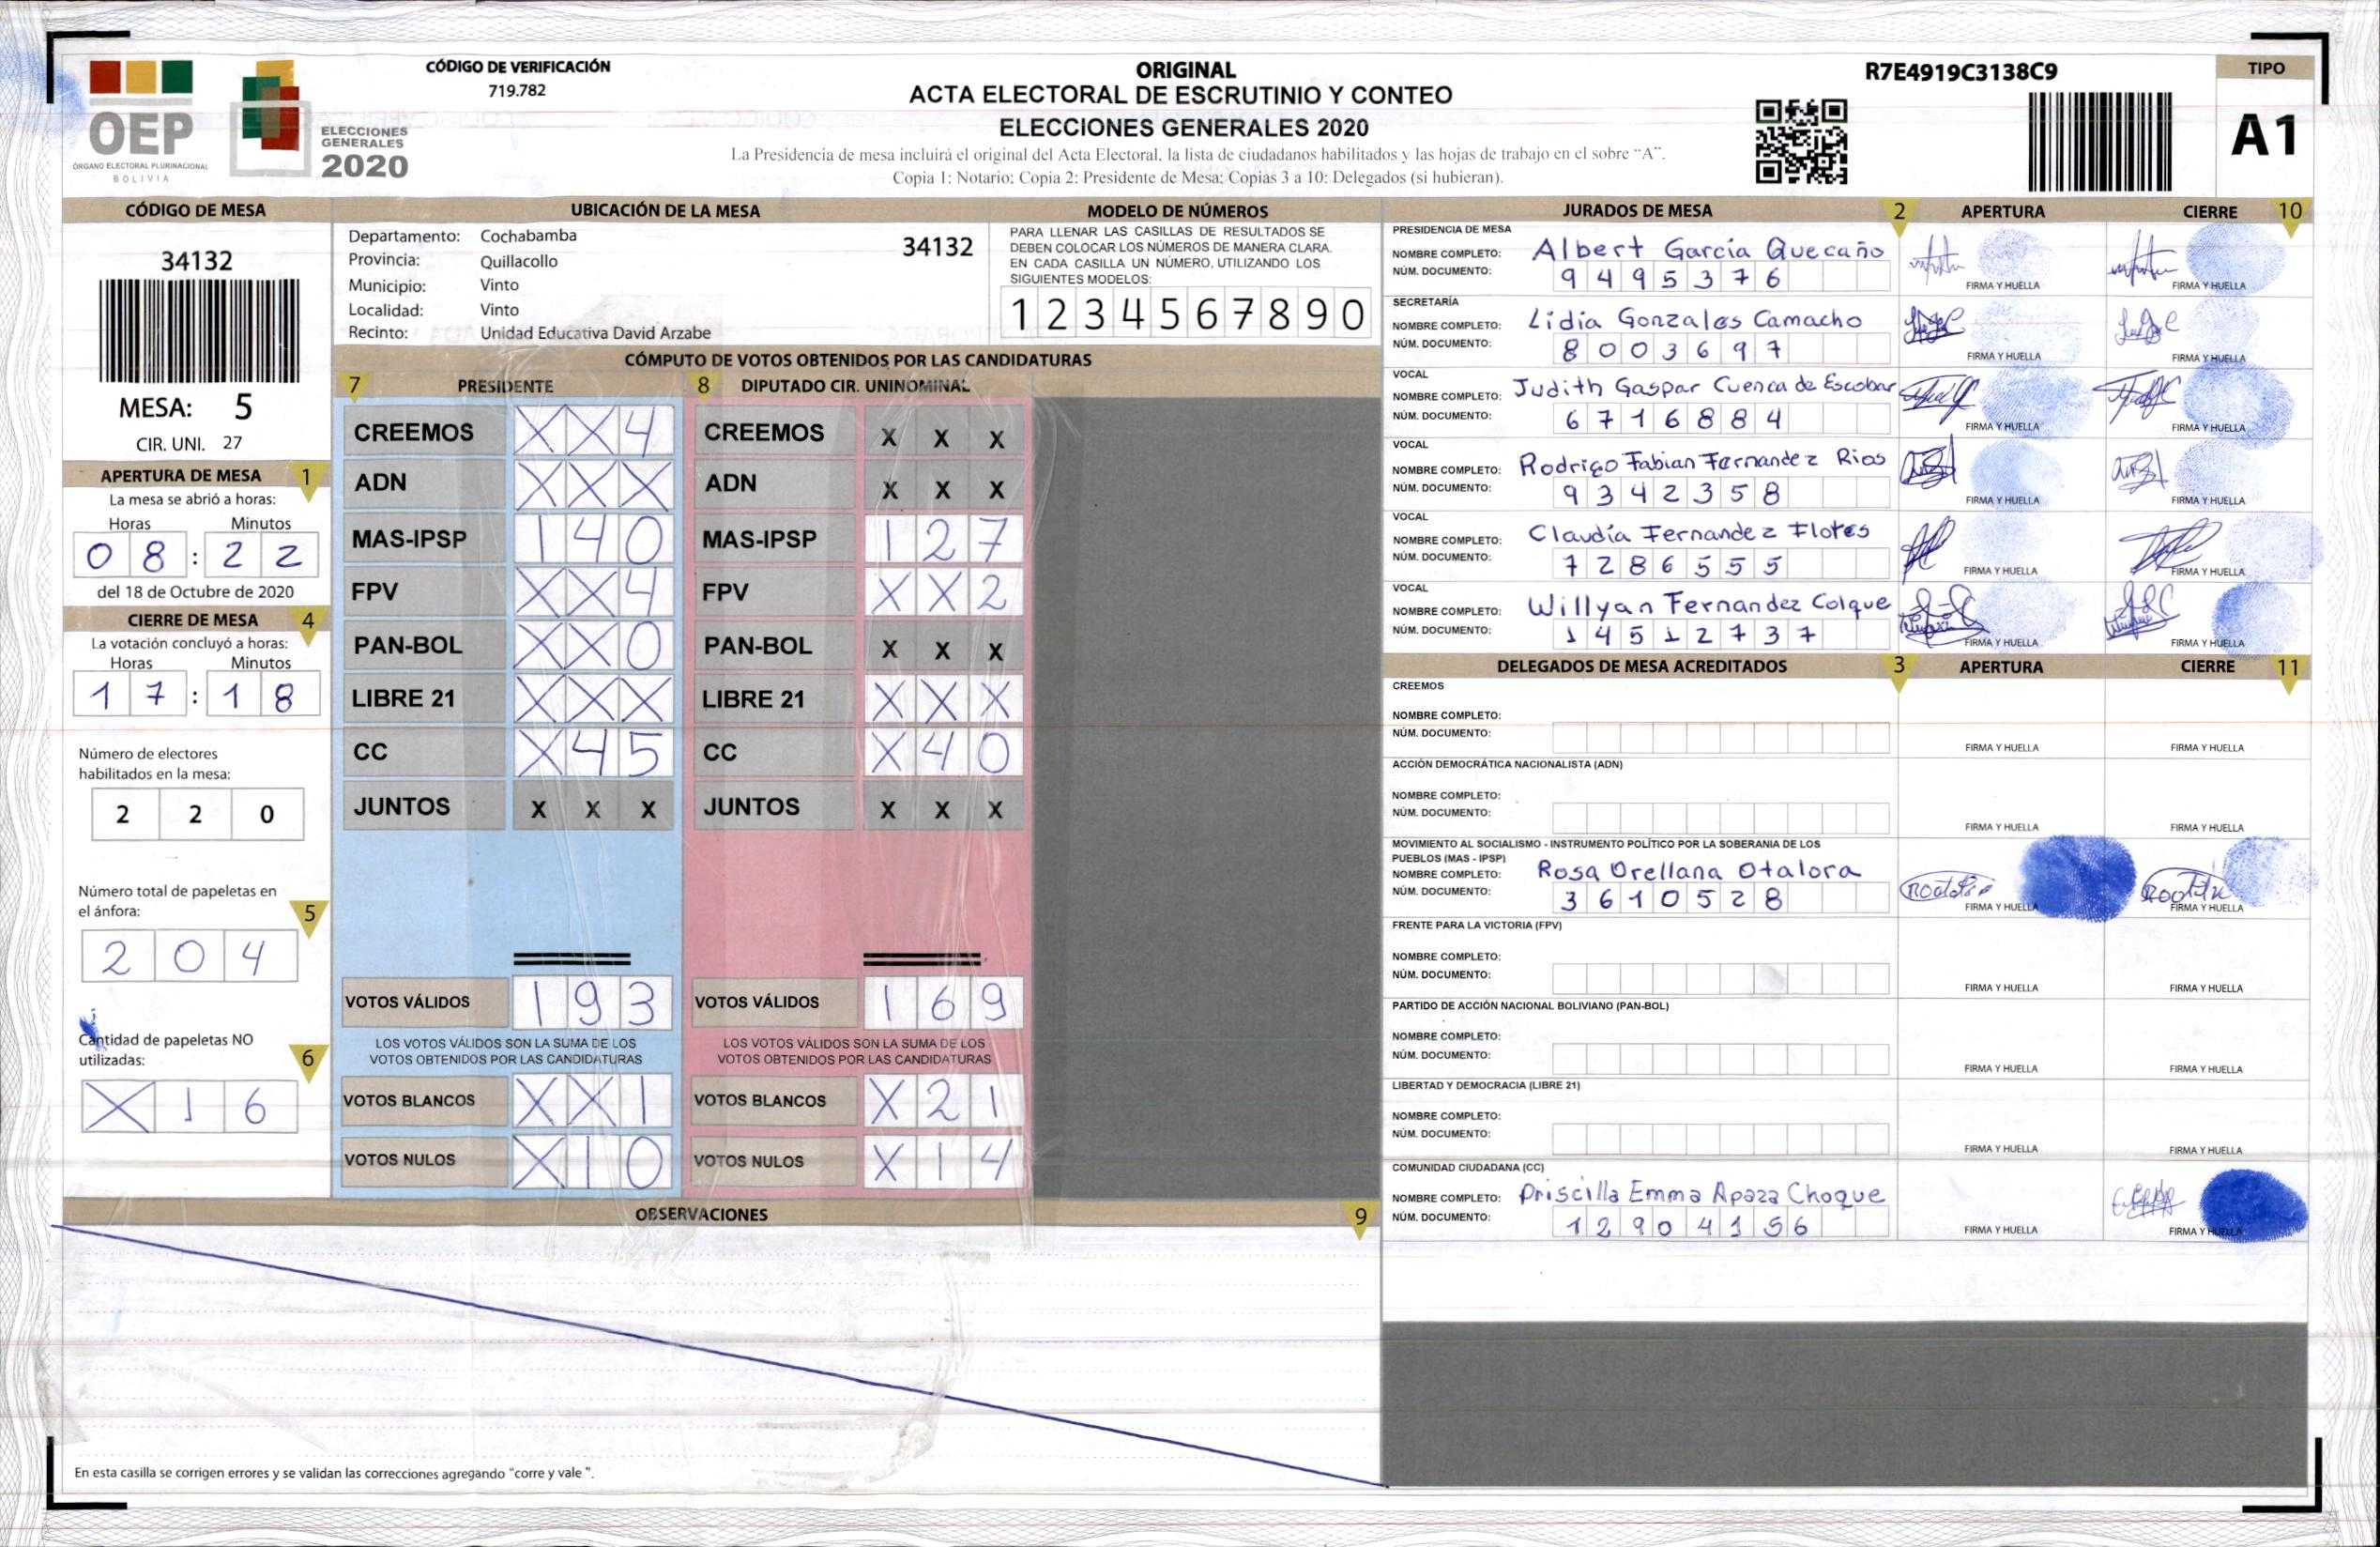 OEP
ÓRGANO ELECTORAL PLURINACIONAL
BOLIVIA
ELECCIONES
GENERALES
2020
CÓDIGO DE VERIFICACIÓN
719.782
ORIGINAL
ACTA ELECTORAL DE ESCRUTINIO Y CONTEO
ELECCIONES GENERALES 2020
La Presidencia de mesa incluirá el original del Acta Electoral, la lista de ciudadanos habilitados y las hojas de trabajo en el sobre "A".
Copia 1: Notario; Copia 2: Presidente de Mesa; Copias 3 a 10: Delegados (si hubieran).
R7E4919C3138C9
TIPO
A1
CÓDIGO DE MESA
34132
MESA: 5
CIR. UNI. 27
APERTURA DE MESA 1
La mesa se abrió a horas:
Horas Minutos
08:22
del 18 de Octubre de 2020
CIERRE DE MESA 4
La votación concluyó a horas:
Horas Minutos
17:18
Número de electores
habilitados en la mesa:
220
Número total de papeletas en
el ánfora: 5
204
Cantidad de papeletas NO
utilizadas: 6
X16
UBICACIÓN DE LA MESA
Departamento: Cochabamba 34132
Provincia: Quillacollo
Municipio: Vinto
Localidad: Vinto
Recinto: Unidad Educativa David Arzabe
MODELO DE NÚMEROS
PARA LLENAR LAS CASILLAS DE RESULTADOS SE
DEBEN COLOCAR LOS NÚMEROS DE MANERA CLARA.
EN CADA CASILLA UN NÚMERO, UTILIZANDO LOS
SIGUIENTES MODELOS:
1234567890
CÓMPUTO DE VOTOS OBTENIDOS POR LAS CANDIDATURAS
7 PRESIDENTE 8 DIPUTADO CIR. UNINOMINAL
CREEMOS XX4 CREEMOS X X X
ADN XXX ADN X X X
MAS-IPSP 140 MAS-IPSP 127
FPV XX4 FPV XX2
PAN-BOL XX0 PAN-BOL X X X
LIBRE 21 XXX LIBRE 21 XXX
CC X45 CC X40
JUNTOS X X X JUNTOS X X X
VOTOS VÁLIDOS 193 VOTOS VÁLIDOS 169
LOS VOTOS VÁLIDOS SON LA SUMA DE LOS LOS VOTOS VÁLIDOS SON LA SUMA DE LOS
VOTOS OBTENIDOS POR LAS CANDIDATURAS VOTOS OBTENIDOS POR LAS CANDIDATURAS
VOTOS BLANCOS XX1 VOTOS BLANCOS X21
VOTOS NULOS X10 VOTOS NULOS X14
OBSERVACIONES 9
En esta casilla se corrigen errores y se validan las correcciones agregando "corre y vale ".
JURADOS DE MESA 2 APERTURA CIERRE 10
PRESIDENCIA DE MESA
NOMBRE COMPLETO: Albert García Quecaño
NÚM. DOCUMENTO: 9495376
FIRMA Y HUELLA FIRMA Y HUELLA
SECRETARÍA
NOMBRE COMPLETO: Lidia Gonzales Camacho
NÚM. DOCUMENTO: 8003697
FIRMA Y HUELLA FIRMA Y HUELLA
VOCAL
NOMBRE COMPLETO: Judith Gaspar Cuenca de Escobar
NÚM. DOCUMENTO: 6716884
FIRMA Y HUELLA FIRMA Y HUELLA
VOCAL
NOMBRE COMPLETO: Rodrigo Fabian Fernandez Rios
NÚM. DOCUMENTO: 9342358
FIRMA Y HUELLA FIRMA Y HUELLA
VOCAL
NOMBRE COMPLETO: Claudia Fernandez Flores
NÚM. DOCUMENTO: 7286555
FIRMA Y HUELLA FIRMA Y HUELLA
VOCAL
NOMBRE COMPLETO: Willyan Fernandez Colque
NÚM. DOCUMENTO: 14512737
FIRMA Y HUELLA FIRMA Y HUELLA
DELEGADOS DE MESA ACREDITADOS 3 APERTURA CIERRE 11
CREEMOS
NOMBRE COMPLETO:
NÚM. DOCUMENTO:
FIRMA Y HUELLA FIRMA Y HUELLA
ACCIÓN DEMOCRÁTICA NACIONALISTA (ADN)
NOMBRE COMPLETO:
NÚM. DOCUMENTO:
FIRMA Y HUELLA FIRMA Y HUELLA
MOVIMIENTO AL SOCIALISMO - INSTRUMENTO POLÍTICO POR LA SOBERANIA DE LOS
PUEBLOS (MAS - IPSP)
NOMBRE COMPLETO: Rosa Orellana Otalora
NÚM. DOCUMENTO: 3610528
FIRMA Y HUELLA FIRMA Y HUELLA
FRENTE PARA LA VICTORIA (FPV)
NOMBRE COMPLETO:
NÚM. DOCUMENTO:
FIRMA Y HUELLA FIRMA Y HUELLA
PARTIDO DE ACCIÓN NACIONAL BOLIVIANO (PAN-BOL)
NOMBRE COMPLETO:
NÚM. DOCUMENTO:
FIRMA Y HUELLA FIRMA Y HUELLA
LIBERTAD Y DEMOCRACIA (LIBRE 21)
NOMBRE COMPLETO:
NÚM. DOCUMENTO:
FIRMA Y HUELLA FIRMA Y HUELLA
COMUNIDAD CIUDADANA (CC)
NOMBRE COMPLETO: Priscilla Emma Apaza Choque
NÚM. DOCUMENTO: 12904156
FIRMA Y HUELLA FIRMA Y HUELLA